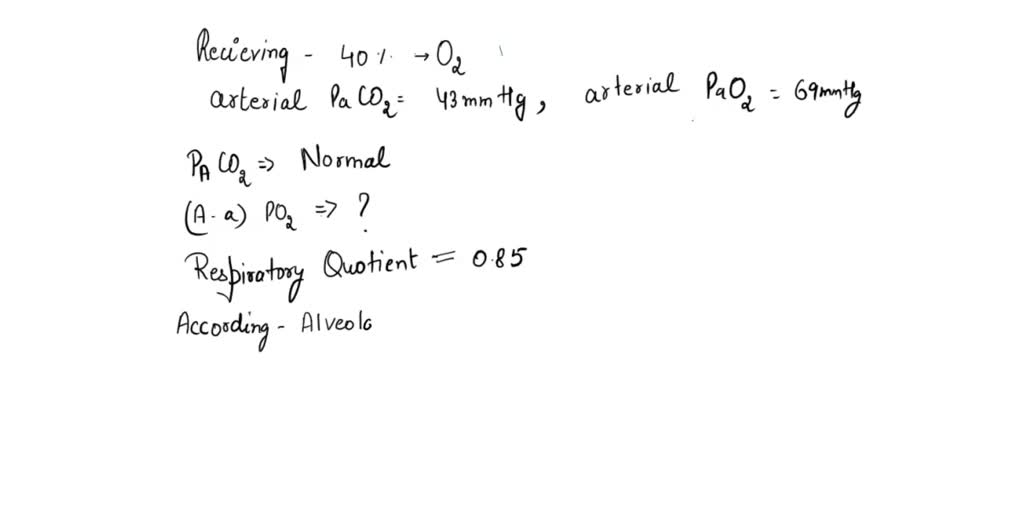 Recieving - 40 % → O₂
arterial PaCO₂ = 43 mmHg, arterial PaO₂ = 69mmHg
PA CO₂ ⇒ Normal
(A-a) PO₂ ⇒ ?
Respiratory Quotient = 0.85
According - Alveola